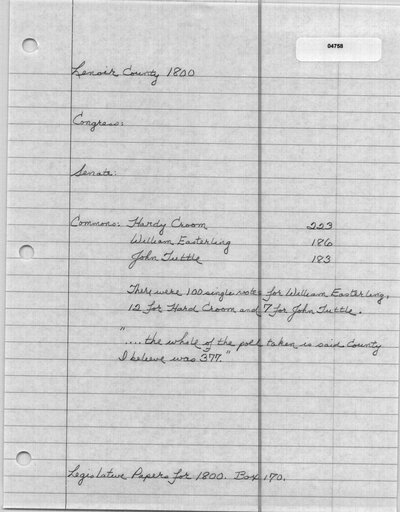 04758
Lenoir County 1800
Congress:
Senate:
Commons: Hardy Croom 223
William Easterling 186
John Tuttle 183
There were 100 single votes for William Easterling,
12 for Hard Croom and 7 for John Tuttle.
".... the whole of the poll taken is said County
I believe was 377."
Legislative Papers for 1800. Box 170.